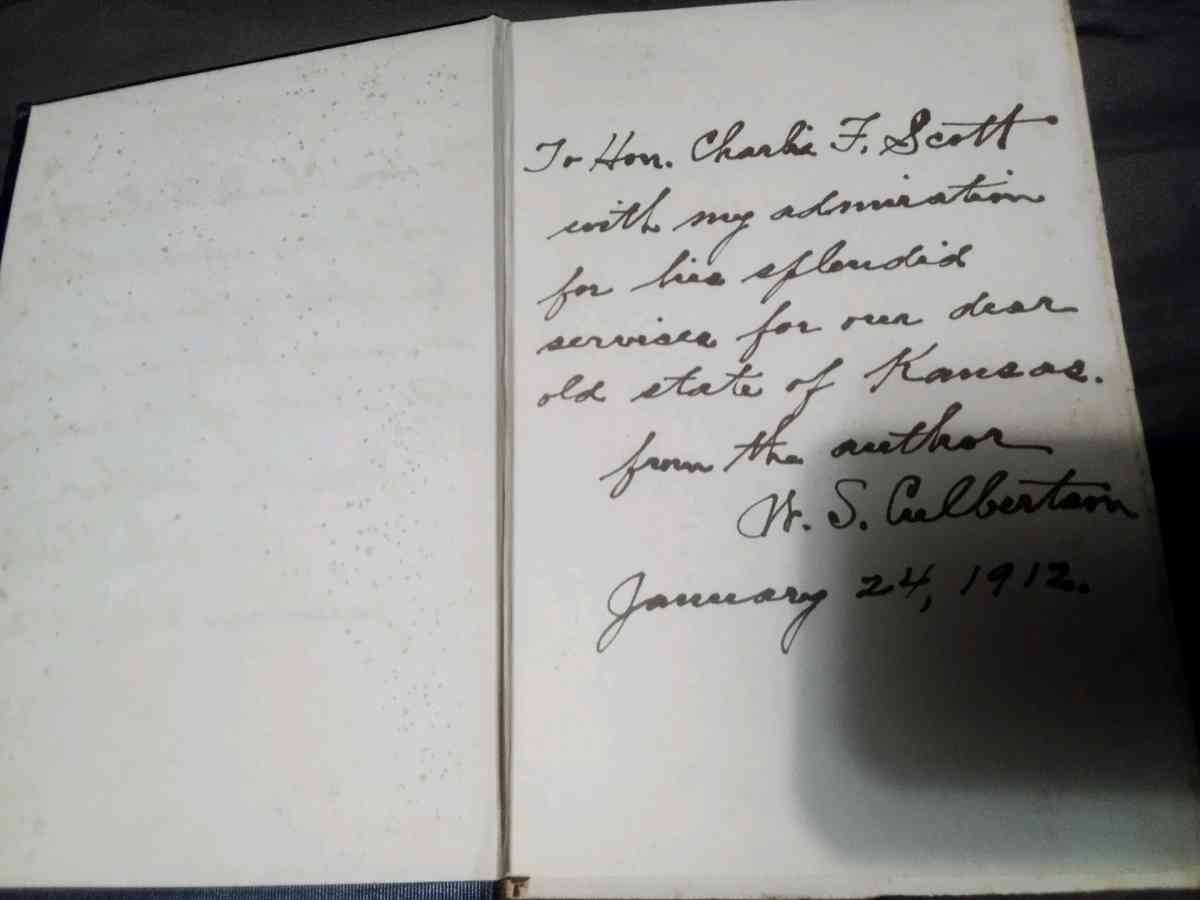 To Hon. Charlie F. Scott
with my admiration
for his splendid
services for our dear
old state of Kansas.
from the author
W. S. Culbertson
January 24, 1912.